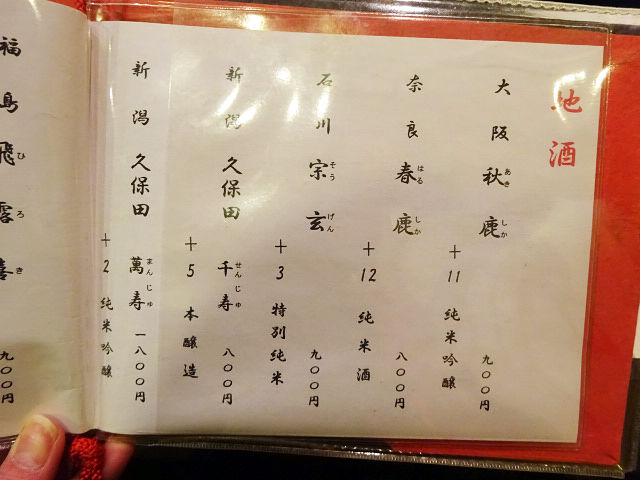 地酒
大阪 秋鹿 九〇〇円
あき しか
+11 純米吟醸
奈良 春鹿 八〇〇円
はる しか
+12 純米酒
石川 宗玄 九〇〇円
そう げん
+3 特別純米
新潟 久保田 千寿 八〇〇円
せんじゅ
+5 本醸造
新潟 久保田 萬寿 一八〇〇円
まんじゅ
+2 純米吟醸
福島 飛露喜 九〇〇円
ひ ろ き